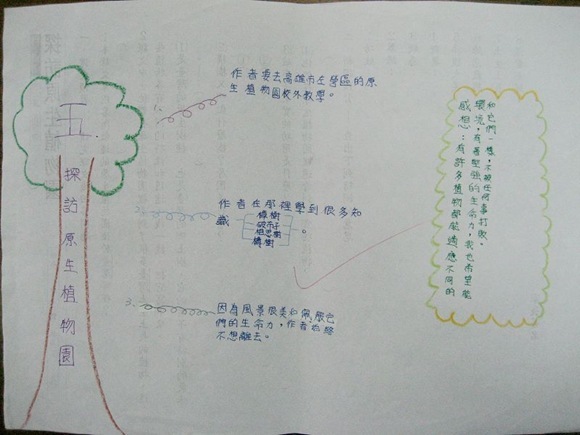 五.
探訪原生植物園
1.
作者要去高雄市左營區的原
生植物園校外教學。
2.
作者在那裡學到很多知
識
破布子
相思樹
。
3.
因為風景很美和佩服它
們的生命力，作者
不想離去。
感想：有許多植物都能適應不同的
環境，有著堅強的生命力，我也希望能
和它們一樣，不被任何事打敗。